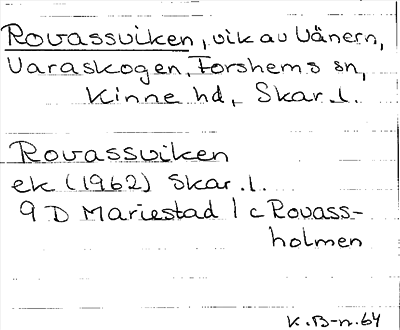 Rovassviken, vik av Vänern,
Varaskogen, Forshems sn,
Kinne hd, Skar.l.
Rovassviken
ek (1962) Skar.l.
9 D Mariestad 1 c Rovass-
holmen
K.B-n.64